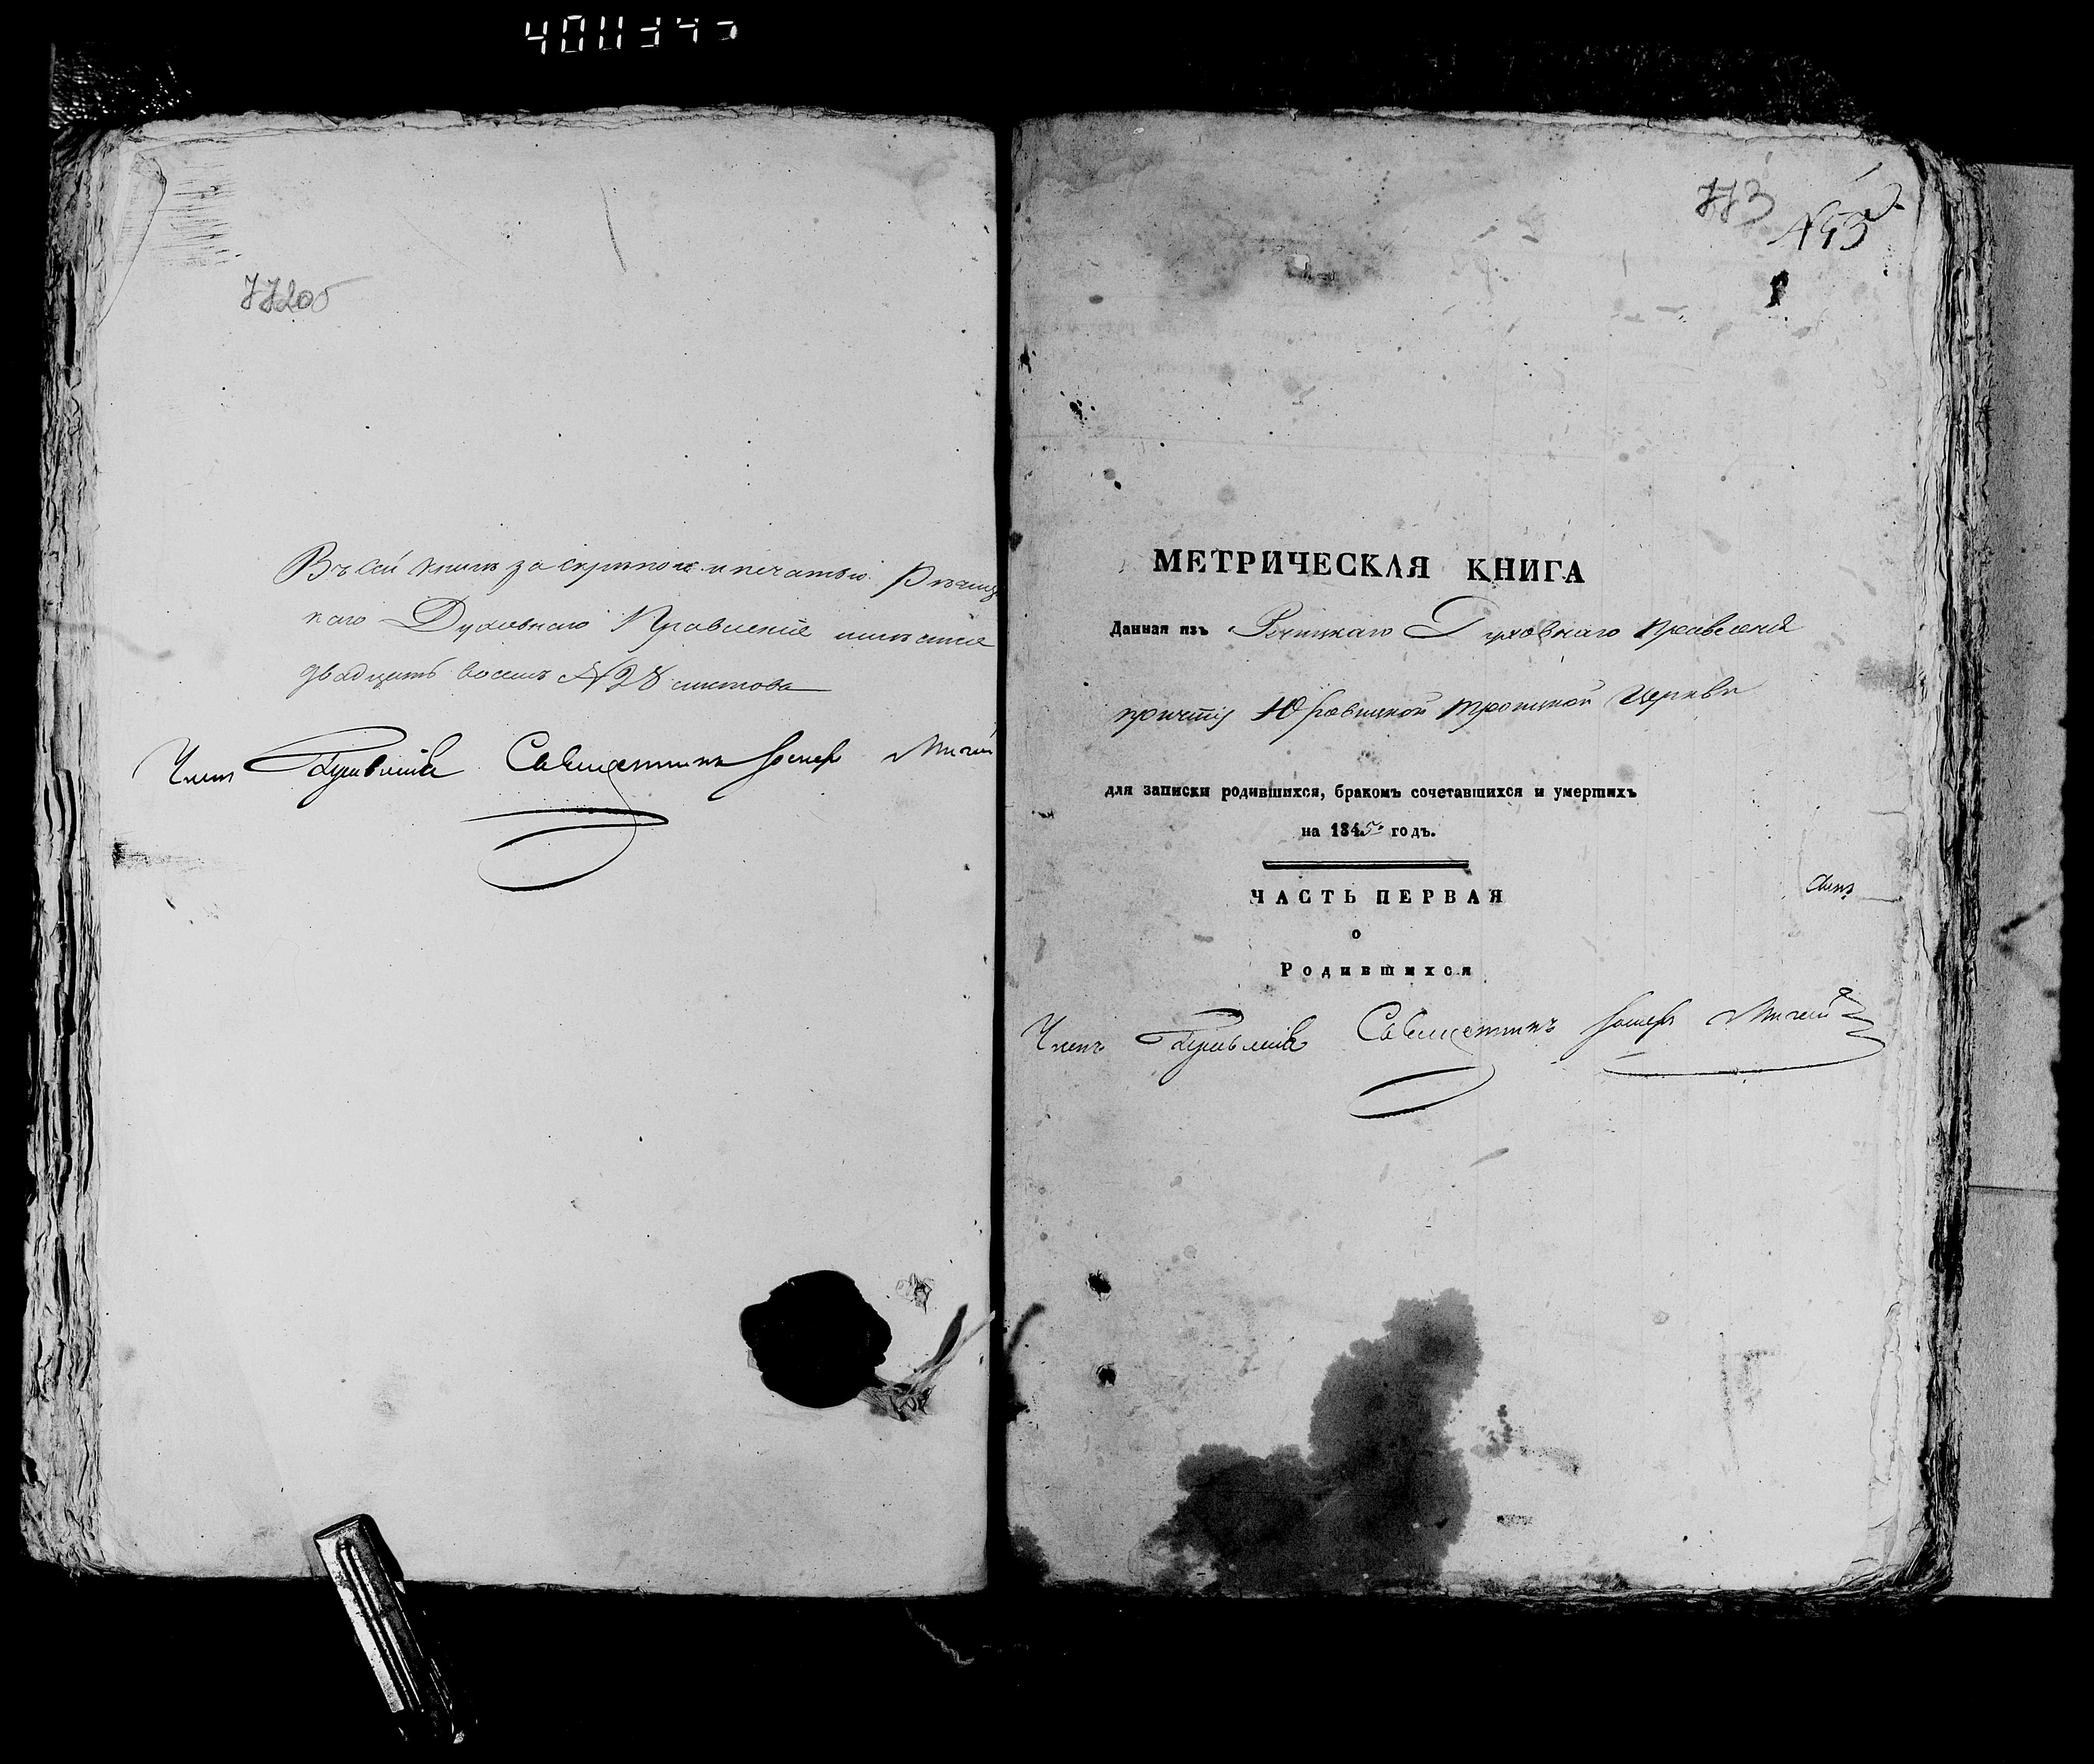 772об
Въ сей книгѣ за скрѣпою и печатью Рѣчиц
каго Духовнаго Правленія
двадцать восемь №28 листовъ
Членъ Священникъ
773
№43
МЕТРИЧЕСКАЯ КНИГА
Данная изъ Речицкаго Духовнаго Правленія
причту Юровицкой Троицкой Церкви
для записки родившихся, бракомъ сочетавшихся и умершихъ
на 1845 годъ.
ЧАСТЬ ПЕРВАЯ
о
Родившихся
Членъ Священникъ